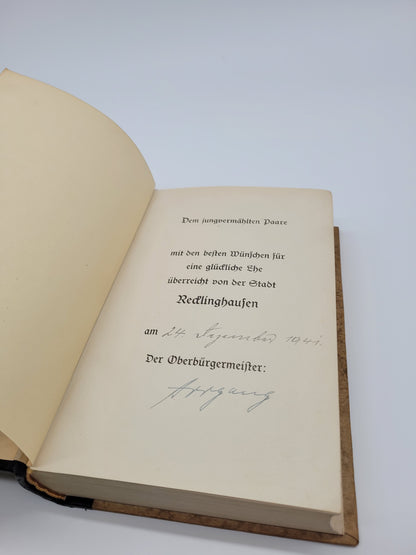 Dem jungvermählten Paare
mit den besten Wünschen für
eine glückliche Ehe
überreicht von der Stadt
Recklinghausen
am 24. Dezember 1941.
Der Oberbürgermeister: